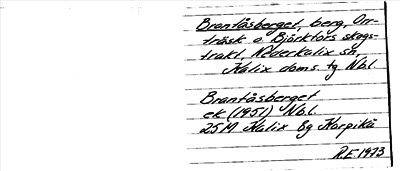 Brantåsberget, berg, Orr-
träsk o Björkfors skogs-
trakt, Nederkalix sn,
Kalix doms. tg Nbl.
Brantåsberget
ek (1951) Nbl.
25M Kalix 8g Korpikå
R.E. 1973